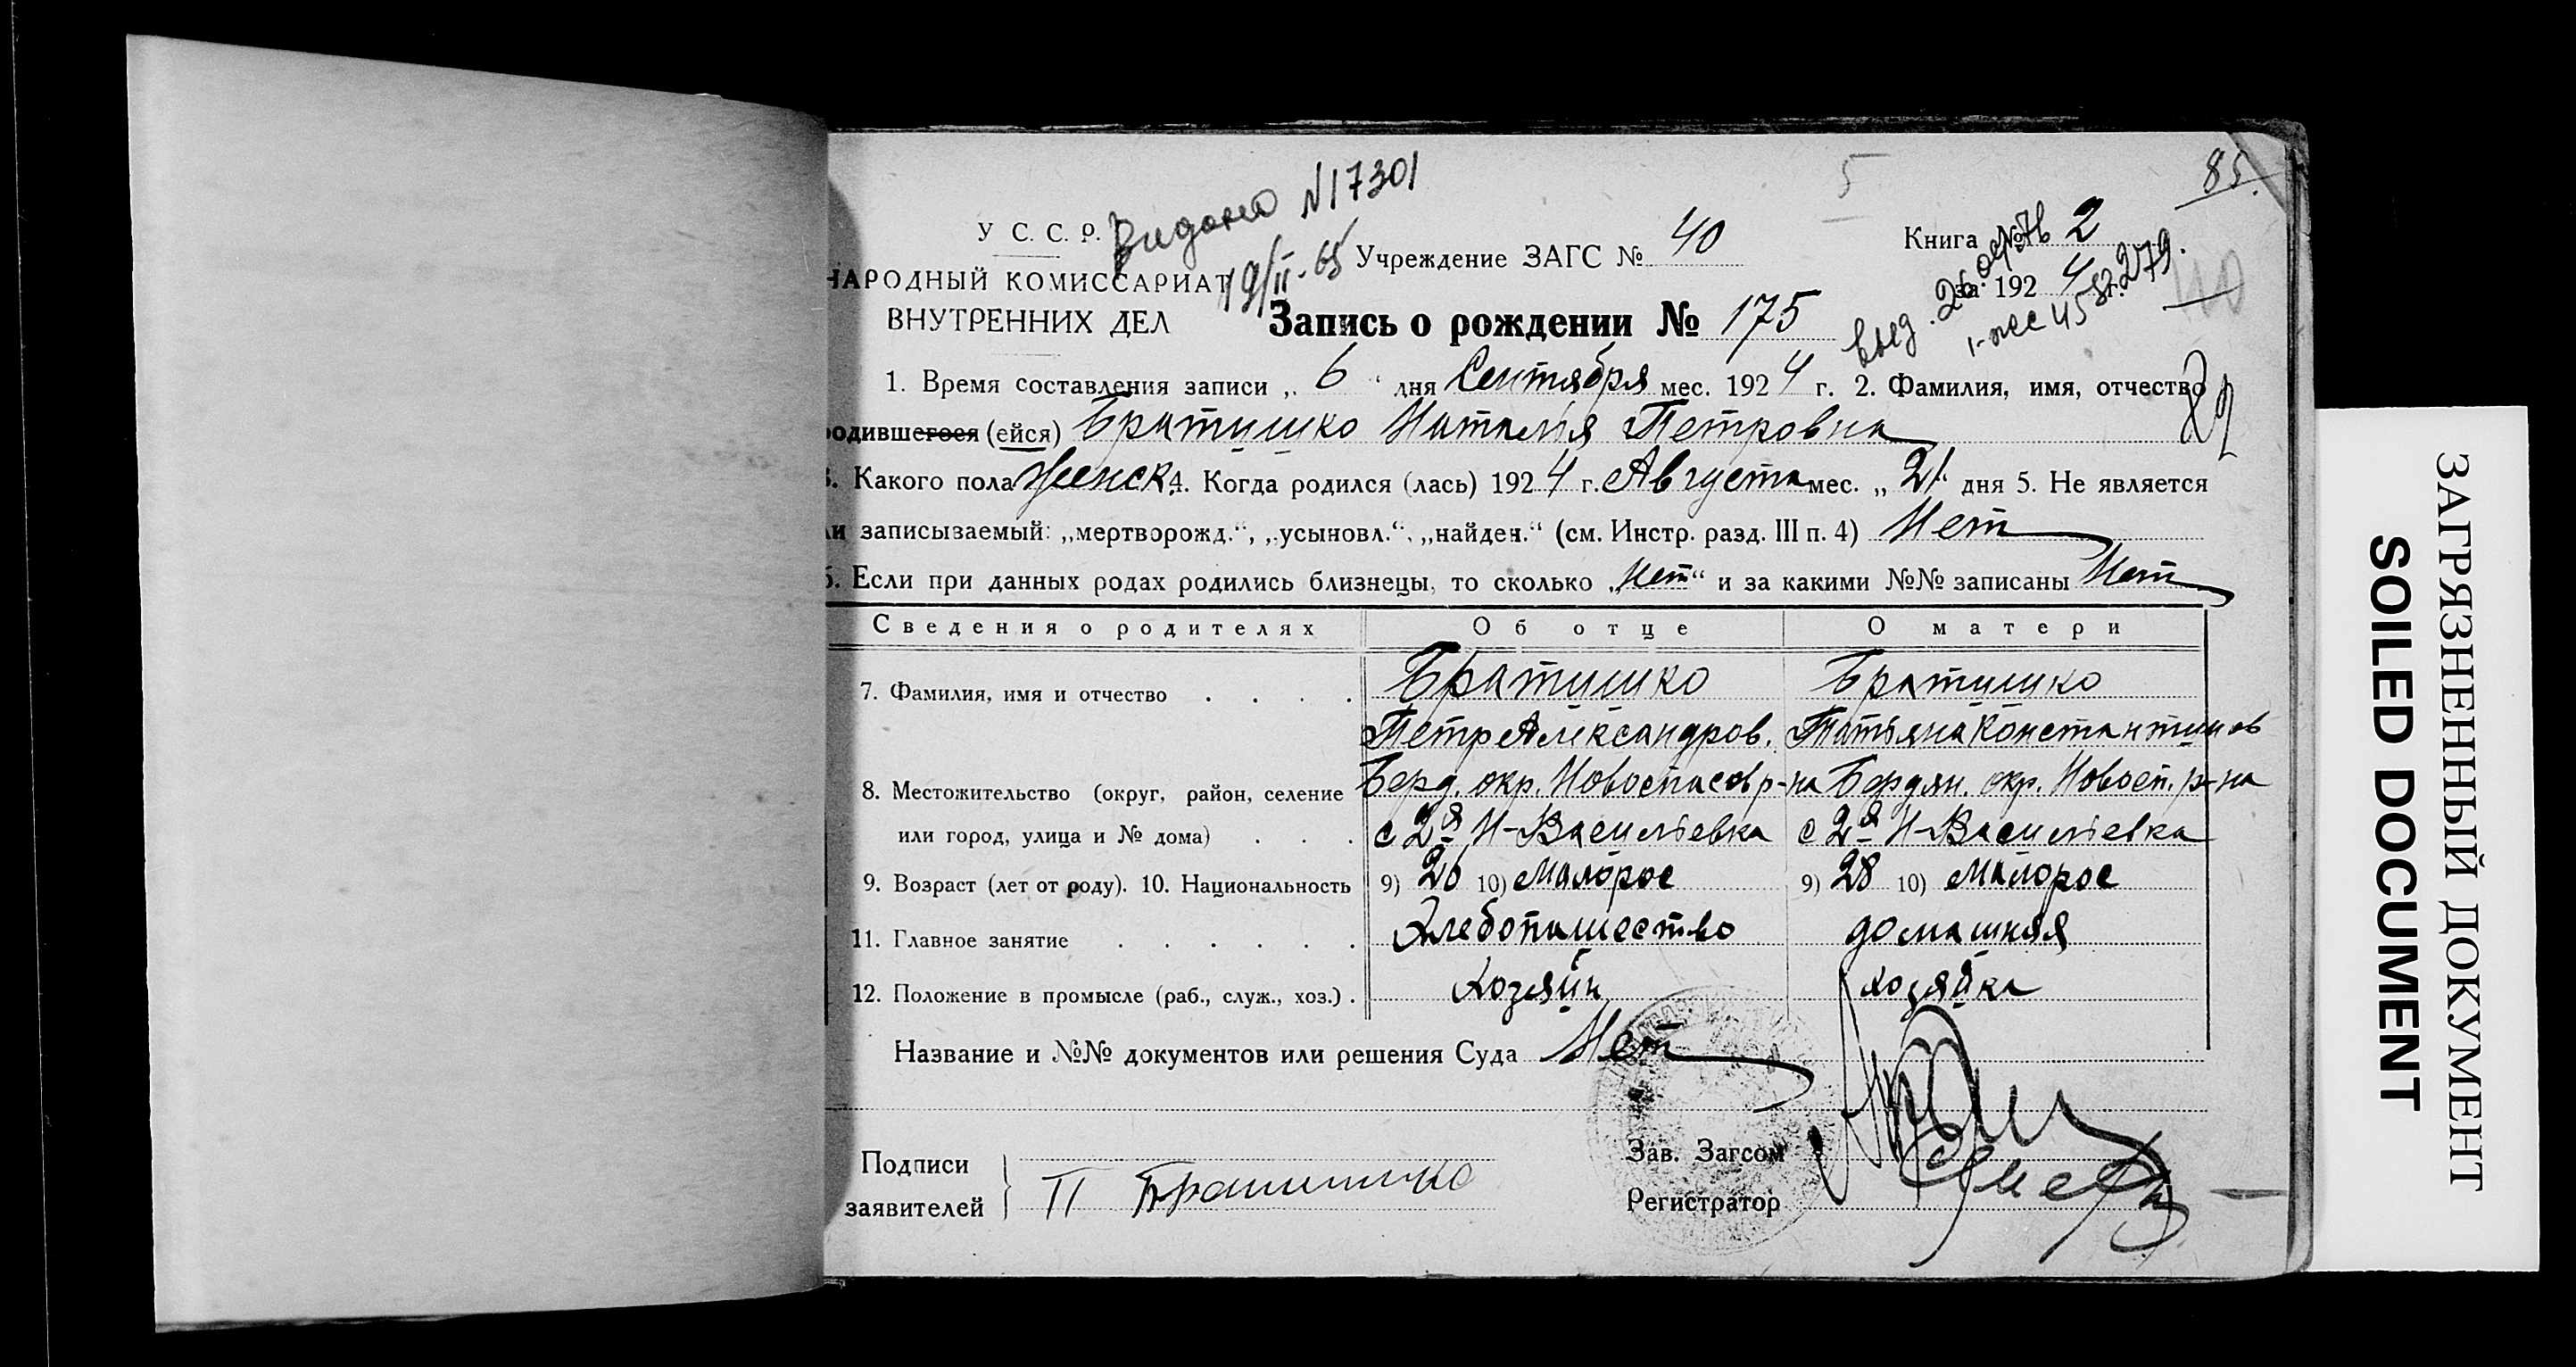 85.
5
Видано №17301
У С. С. Р.
19/II-65
Учреждение ЗАГС № 40
Книга № 2
НАРОДНЫЙ КОМИССАРИАТ
за 1924 г.
ВНУТРЕННИХ ДЕЛ
Запись о рождении № 175
279.
110
1. Время составления записи „ 6 “ дня Сентября мес. 1924 г. 2. Фамилия, имя, отчество
родившегося (ейся) Братишко Наталія Петровна
3. Какого пола женск. 4. Когда родился (лась) 1924 г. Августа мес. „ 21 “ дня 5. Не является
ли записываемый: „мертворожд.“, „усыновл.“, „найден.“ (см. Инстр. разд. III п. 4) Нет
6. Если при данных родах родились близнецы, то сколько „Нет“ и за какими №№ записаны Нет
Сведения о родителях Об отце О матери
7. Фамилия, имя и отчество . . . . Братишко Братишко
Петр Александров. Татьяна Константинов
8. Местожительство (округ, район, селение Берд. окр. Новоспасов р-на Бердян. окр. Новосп. р-на
или город, улица и № дома) . . . с 2я Н-Василіевка с 2я Н-Василіевка
9. Возраст (лет от роду). 10. Национальность 9) 26 10) Малорос 9) 28 10) Малорос
11. Главное занятие . . . . . . Хлебопашество домашняя
12. Положение в промысле (раб., служ., хоз.) . Хозяин хозяйка
Название и №№ документов или решения Суда Нет
Подписи
заявителей
П Братишко
Зав. Загсом
Регистратор
ЗАГРЯЗНЕННЫЙ ДОКУМЕНТ
SOILED DOCUMENT